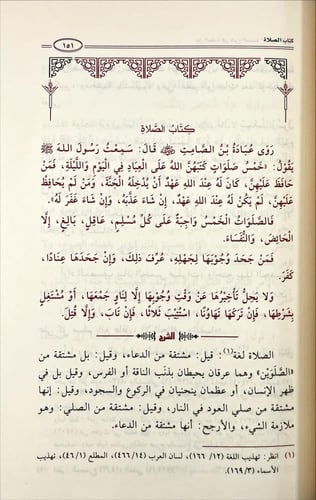 كتاب الصلاة
١٥١
كِتَابُ الصَّلَاةِ
رَوَى عُبَادَةُ بْنُ الصَّامِتِ ﷺ قَالَ: سَمِعْتُ رَسُولَ اللهِ ﷺ
يَقُولُ: «خَمْسُ صَلَوَاتٍ كَتَبَهُنَّ اللهُ عَلَى الْعِبَادِ فِي الْيَوْمِ وَاللَّيْلَةِ، فَمَنْ
حَافَظَ عَلَيْهِنَّ، كَانَ لَهُ عِنْدَ اللهِ عَهْدٌ أَنْ يُدْخِلَهُ الْجَنَّةَ، وَمَنْ لَمْ يُحَافِظْ
عَلَيْهِنَّ، لَمْ يَكُنْ لَهُ عِنْدَ اللهِ عَهْدٌ، إِنْ شَاءَ عَذَّبَهُ، وَإِنْ شَاءَ غَفَرَ لَهُ».
فَالصَّلَوَاتُ الْخَمْسُ وَاجِبَةٌ عَلَى كُلِّ مُسْلِمٍ، عَاقِلٍ، بَالِغٍ، إِلَّا
الْحَائِضَ، وَالنُّفَسَاءَ.
فَمَنْ جَحَدَ وُجُوبَهَا لِجَهْلِهِ، عُرِّفَ ذَلِكَ، وَإِنْ جَحَدَهَا عِنَادًا،
كَفَرَ.
وَلَا يَحِلُّ تَأْخِيرُهَا عَنْ وَقْتِ وُجُوبِهَا إِلَّا لِنَاوٍ جَمْعَهَا، أَوْ مُشْتَغِلٍ
بِشَرْطِهَا، فَإِنْ تَرَكَهَا تَهَاوُنًا، اسْتُتِيبَ ثَلَاثًا، فَإِنْ تَابَ، وَإِلَّا قُتِلَ.
الشرح
الصلاة لغة(١): قيل: مشتقة من الدعاء، وقيل: بل مشتقة من
«الصَّلَوَيْن» وهما عرقان يحيطان بذَنَب الناقة أو الفرس، وقيل بل في
ظهر الإنسان، أو عظمان ينحنيان في الركوع والسجود، وقيل: إنها
مشتقة من صلي العود في النار، وقيل: مشتقة من الصلي: وهو
ملازمة الشيء، والأرجح: أنها مشتقة من الدعاء.
(١) انظر: تهذيب اللغة (١٢/ ١٦٦)، لسان العرب (١٤/ ٤٦٦)، المطلع (١/ ٤٦)، تهذيب
الأسماء (٣/ ١٦٩).